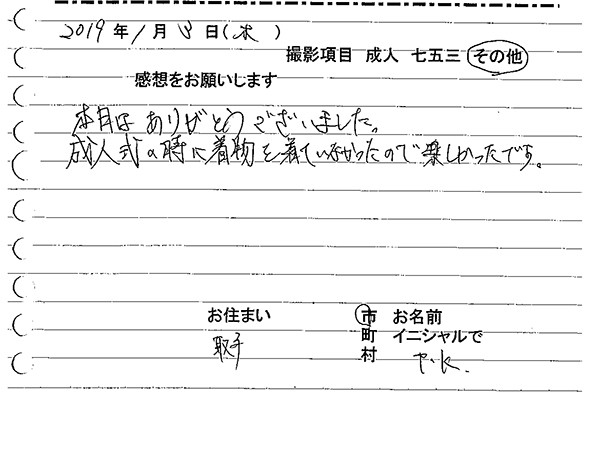 2019年1月3日(木)
撮影項目 成人 七五三 その他
感想をお願いします
本日は ありがとうございました。
成人式の時に着物を着ていなかったので楽しかったです。
お住まい 市 お名前
町 イニシャルで
取手 村 Y.K.